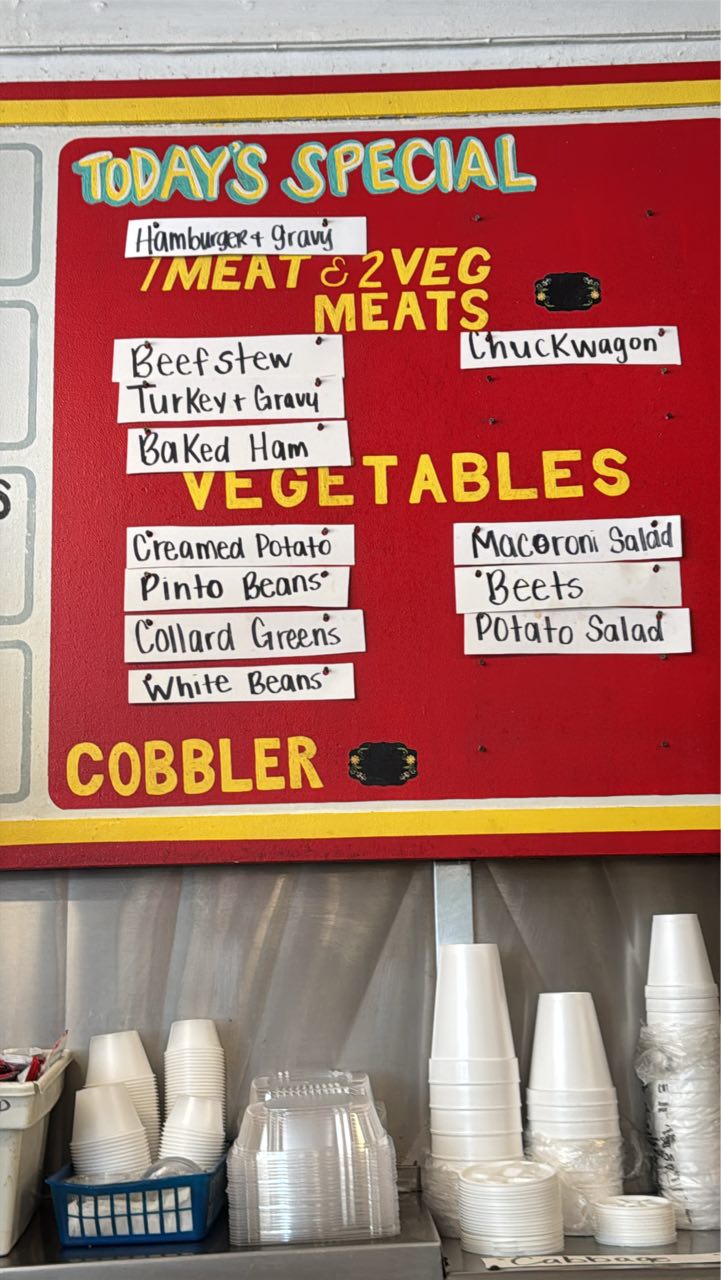 TODAY'S SPECIAL
Hamburger + Gravy
1 MEAT & 2 VEG
MEATS
Beef stew
Chuckwagon
Turkey + Gravy
Baked Ham
VEGETABLES
Creamed Potato
Macoroni Salad
Pinto Beans
Beets
Collard Greens
Potato Salad
White Beans
COBBLER
Cabbage